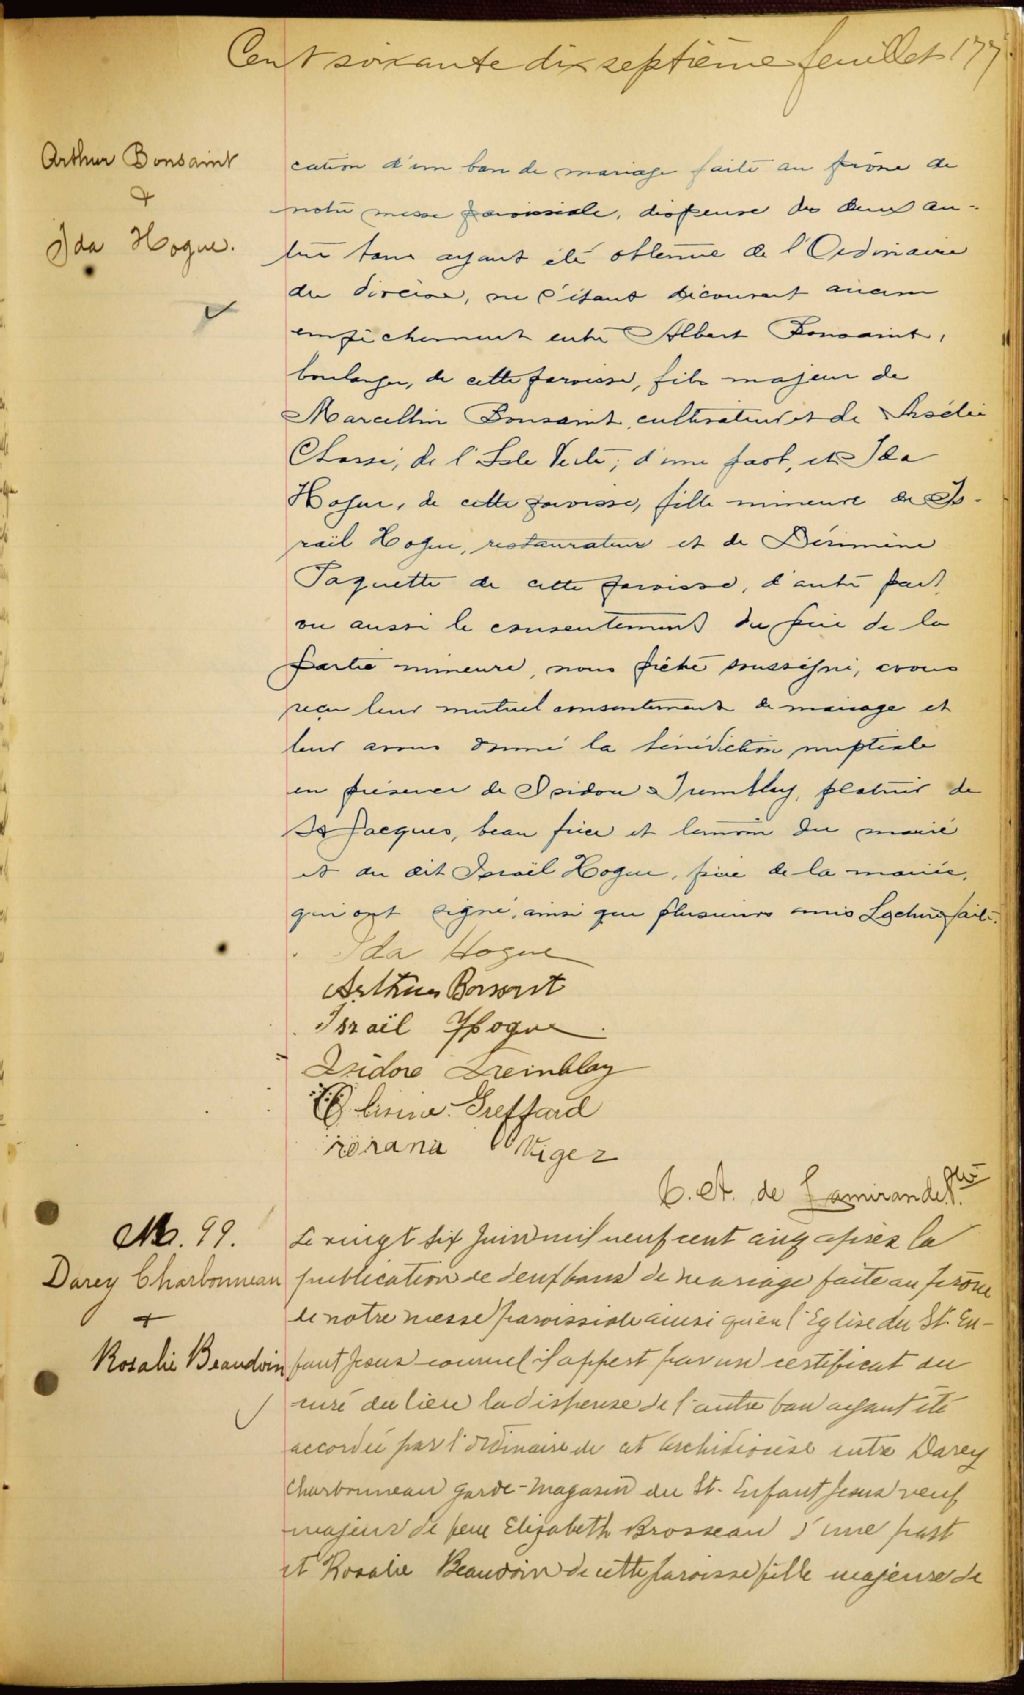 Cent soixante dix septième feuillet 177
Arthur Bonsaint
&
Ida Hogue.
cation d'un ban de mariage faite au prône de
notre messe paroissiale, dispense des deux au-
tres bans ayant été obtenue de l'Ordinaire
du diocèse, ne s'étant découvert aucun
empêchement entre Albert Bonsaint,
boulanger, de cette paroisse, fils majeur de
Marcellin Bonsaint, cultivateur et de
de l'Isle Verte, d'une part, et Ida
Hogue, de cette paroisse, fille mineure de Is-
raël Hogue, restaurateur et de
Paquette de cette paroisse, d'autre part,
vu aussi le consentement du père de la
partie mineure, nous prêtre soussigné, avons
reçu leur mutuel consentement de mariage et
leur avons donné la bénédiction nuptiale
en présence de Isidore Tremblay, platrier de
St Jacques, beau frère et témoin du marié
et du dit Israël Hogue, père de la mariée,
qui ont signé, ainsi que plusieurs amis Lecture faite.
Ida Hogue
Arthur Bonsaint
Israël Hogue
Isidore Tremblay
Greffard
rorana Viger
C. A. de Lamirande, Ptre
M. 99.
Darey Charbonneau
+
Rosalie Beaudoin
Le vingt six Juin mil neuf cent cinq après la
publication de deux bans de mariage faite au prône
de notre messe paroissiale ainsi qu'en l'Eglise du St. En-
fant Jesus comme il appert par un certificat du
curé du lieu la dispense de l'autre ban ayant été
accordée par l'ordinaire de cet archidiocèse entre Darey
Charbonneau garde-magasin du St. Enfant Jesus veuf
majeur de feue Elizabeth Brosseau d'une part
et Rosalie Beaudoin de cette paroisse fille majeure de